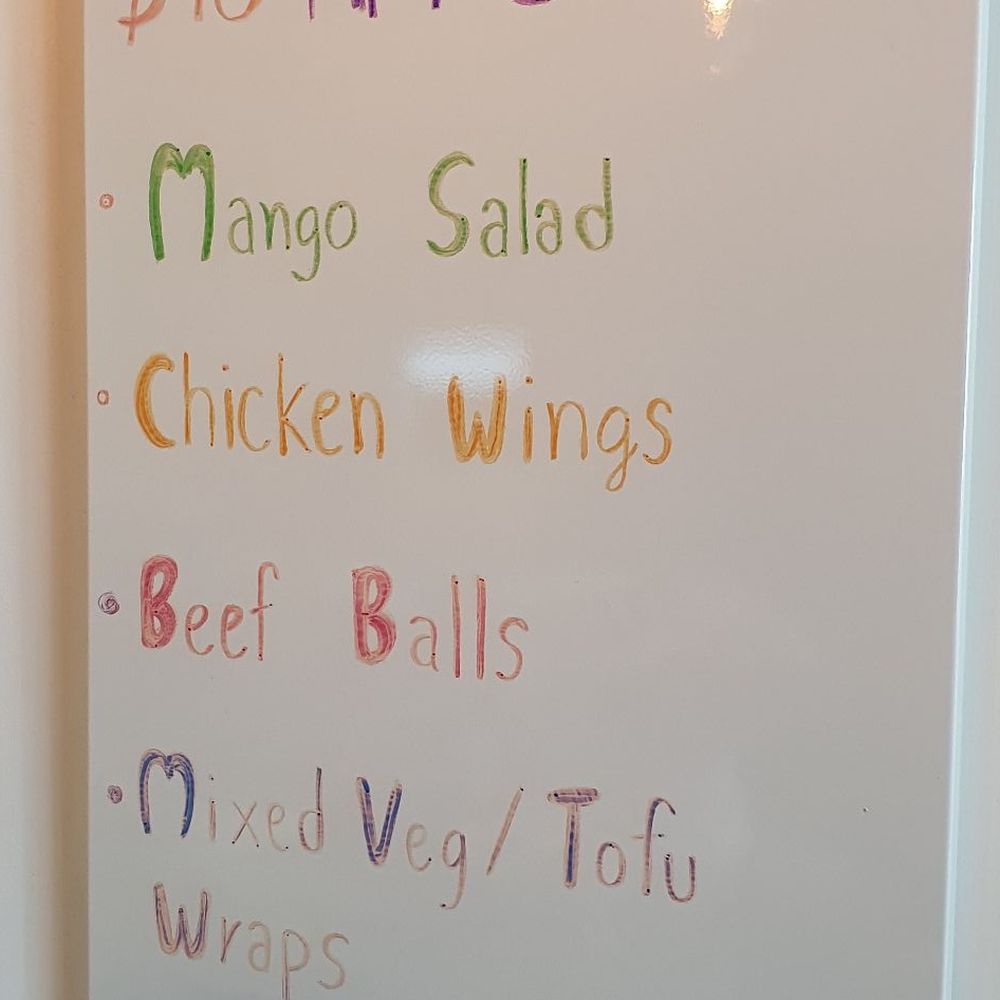 • Mango Salad
• Chicken Wings
• Beef Balls
• Mixed Veg / Tofu
Wraps